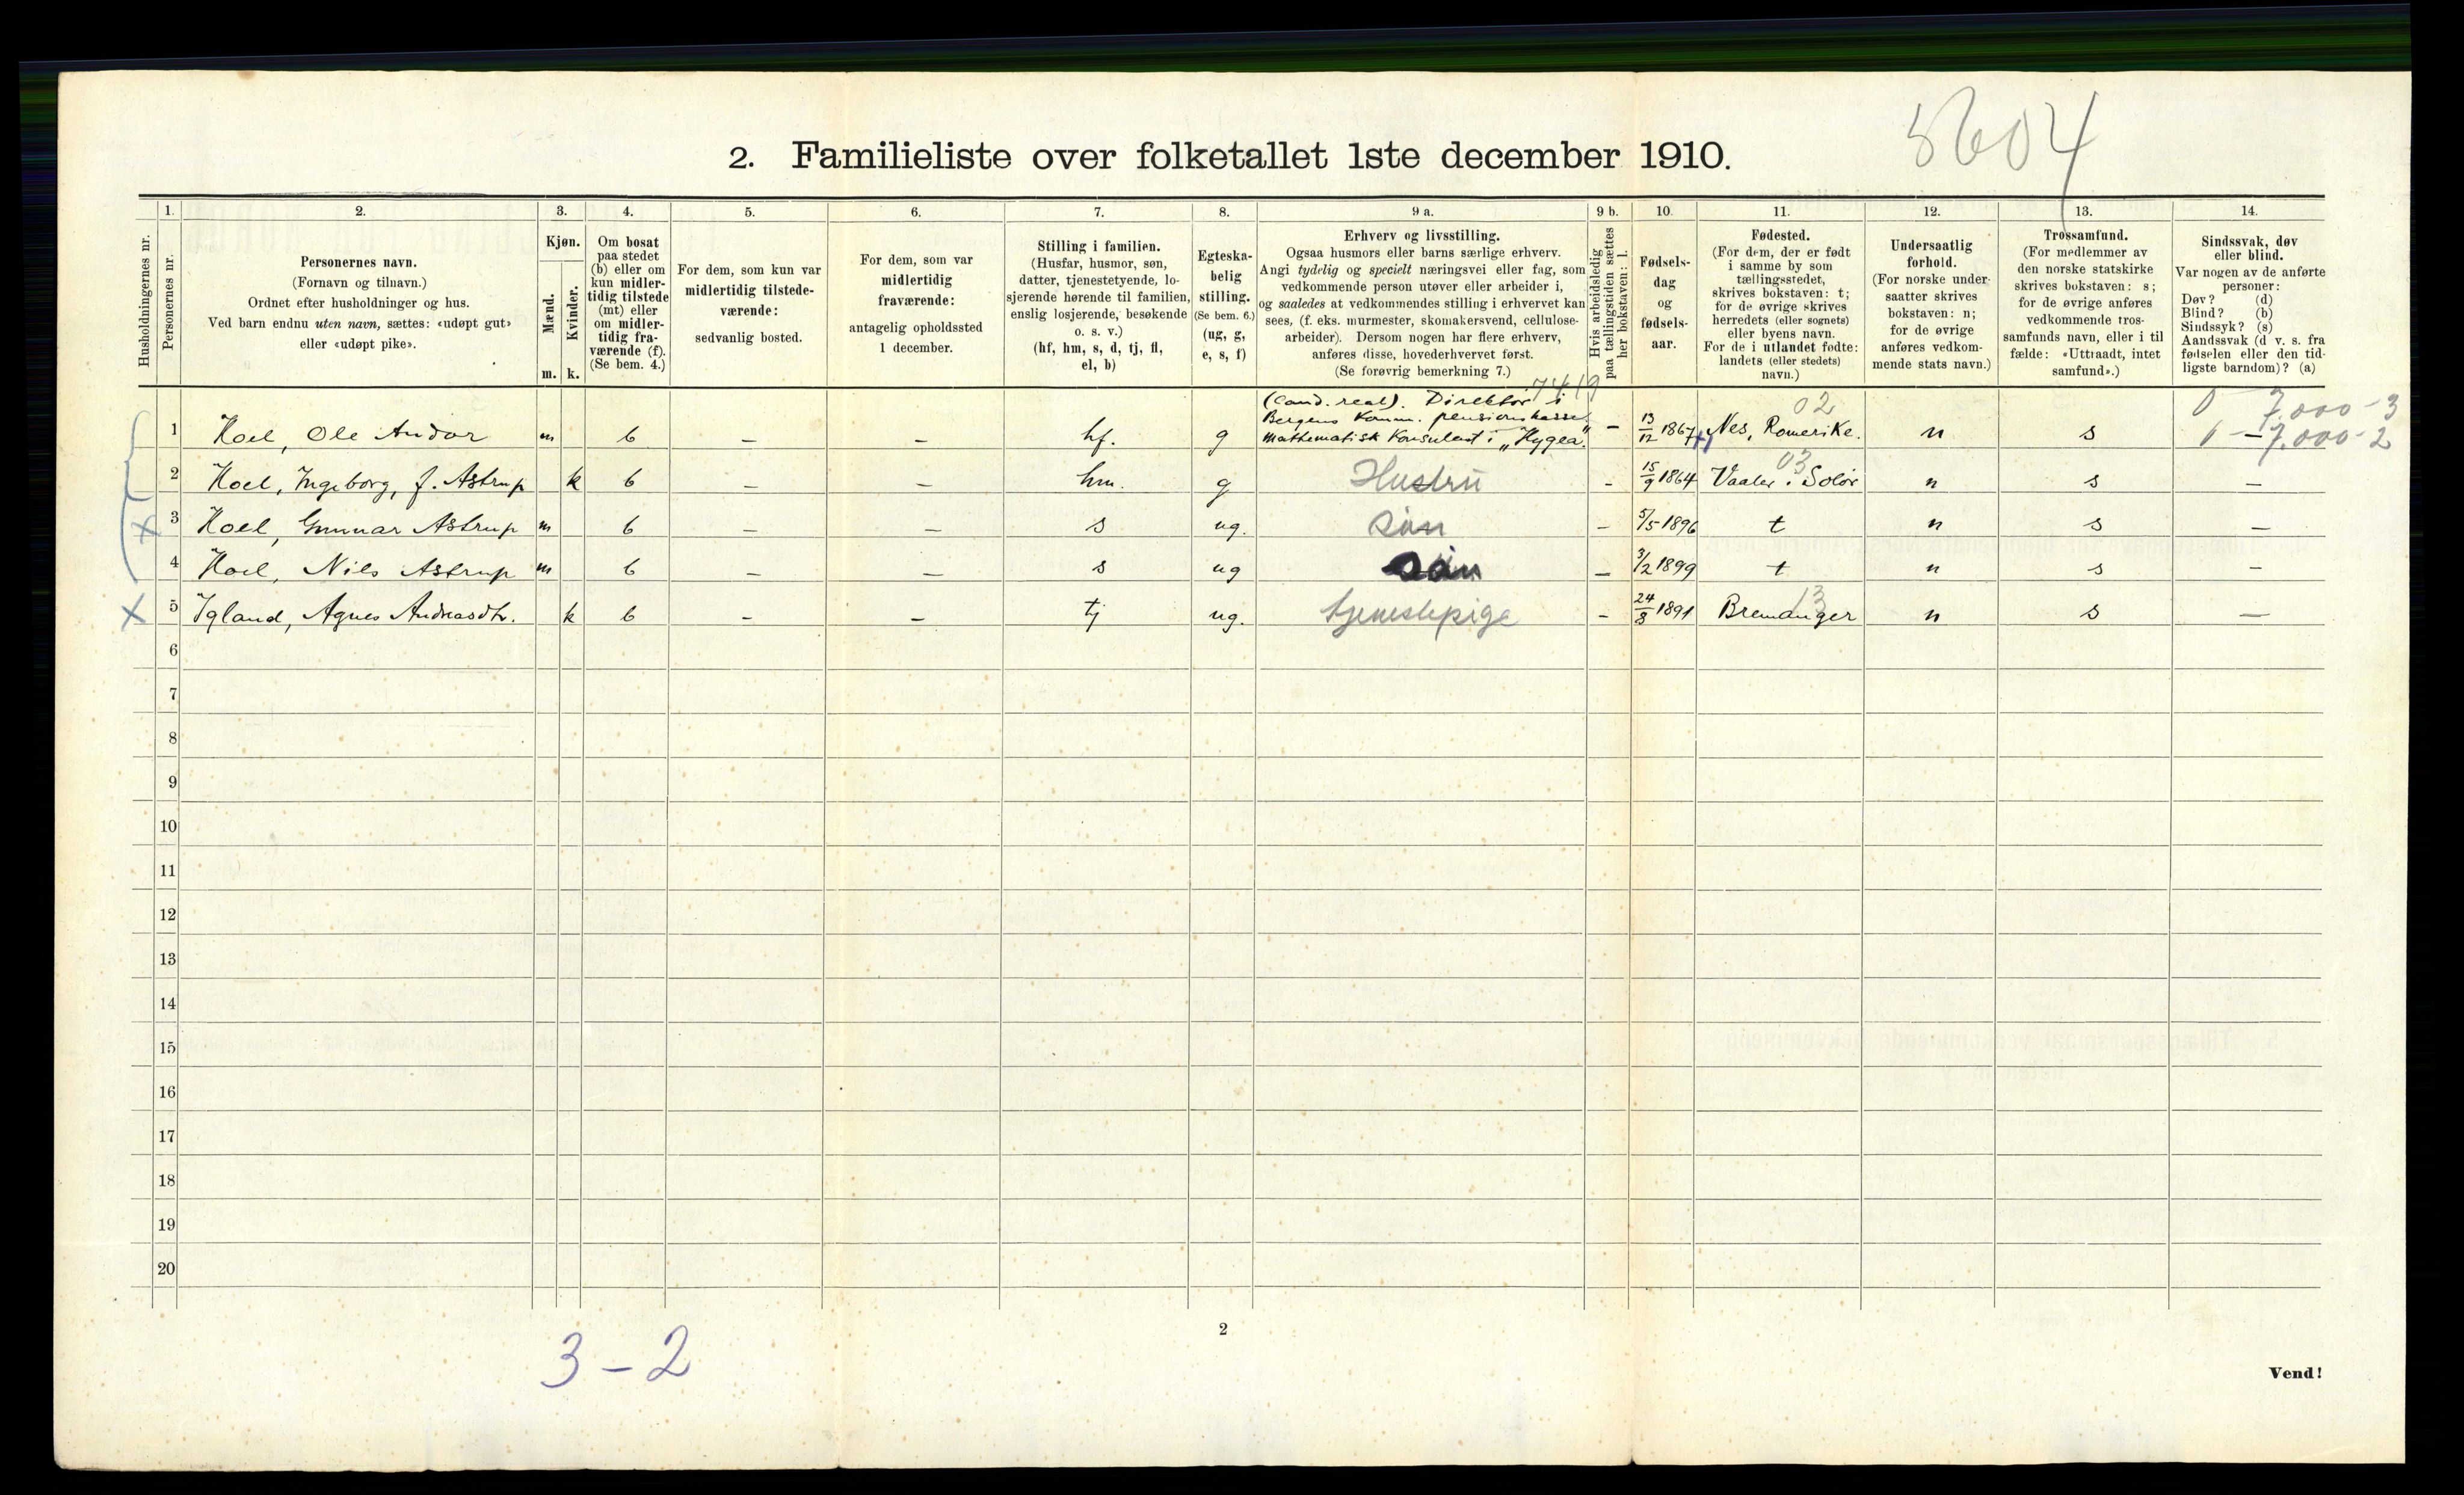 5604
2. Familieliste over folketallet 1ste december 1910.
Husholdningernes nr.
1.
Personernes nr.
2.
Personernes navn.
(Fornavn og tilnavn.)
Ordnet efter husholdninger og hus.
Ved barn endnu uten navn, sættes: «udøpt gut»
eller «udøpt pike».
3.
Kjøn.
Mænd.
Kvinder.
m. k.
4.
Om bosat
paa stedet
(b) eller om
kun midler-
tidig tilstede
(mt) eller
om midler-
tidig fra-
værende (f).
(Se bem. 4.)
5.
For dem, som kun var
midlertidig tilstede-
værende:
sedvanlig bosted.
6.
For dem, som var
midlertidig
fraværende:
antagelig opholdssted
1 december.
7.
Stilling i familien.
(Husfar, husmor, søn,
datter, tjenestetyende, lo-
sjerende hørende til familien,
enslig losjerende, besøkende
o. s. v.)
(hf, hm, s, d, tj, fl,
el, b)
8.
Egteska-
belig
stilling.
(Se bem. 6.)
(ug, g,
e, s, f)
9 a.
Erhverv og livsstilling.
Ogsaa husmors eller barns særlige erhverv.
Angi tydelig og specielt næringsvei eller fag, som
vedkommende person utøver eller arbeider i,
og saaledes at vedkommendes stilling i erhvervet kan
sees, (f. eks. murmester, skomakersvend, cellulose-
arbeider). Dersom nogen har flere erhverv,
anføres disse, hovederhvervet først.
(Se forøvrig bemerkning 7.)
9 b.
Hvis arbeidsledig
paa tællingstiden sættes
her bokstaven: l.
10.
Fødsels-
dag
og
fødsels-
aar.
11.
Fødested.
(For dem, der er født
i samme by som
tællingsstedet,
skrives bokstaven: t;
for de øvrige skrives
herredets (eller sognets)
eller byens navn.
For de i utlandet fødte:
landets (eller stedets)
navn.)
12.
Undersaatlig
forhold.
(For norske under-
saatter skrives
bokstaven: n;
for de øvrige
anføres vedkom-
mende stats navn.)
13.
Trossamfund.
(For medlemmer av
den norske statskirke
skrives bokstaven: s;
for de øvrige anføres
vedkommende tros-
samfunds navn, eller i til
fælde: «Uttraadt, intet
samfund».)
14.
Sindssvak, døv
eller blind.
Var nogen av de anførte
personer:
Døv? (d)
Blind? (b)
Sindssyk? (s)
Aandssvak (d v. s. fra
fødselen eller den tid-
ligste barndom)? (a)
7419
(Cand. real). Direktør i
Bergens Komm. pensionskasse
02
0 7.000-3
1 Hoel, Ole Andor m b – – hf. g Mathematisk Konsulent i „Hygea" – 13/12 1867 Nes, Romerike. n s – 7.000-2
03
2 Hoel, Ingeborg, f. Astrup k b – – hm. g Hustru – 15/9 1864 Vaaler i Solør n s –
3 Hoel, Gunnar Astrup m b – – s ug. søn – 5/5 1896 t n s –
4 Hoel, Nils Astrup m b – – s ug søn – 3/2 1899 t n s –
13
5 Igland, Agnes Andreasdtr. k b – – tj ug. tjenestepige – 24/8 1891 Bremanger n s –
6
7
8
9
10
11
12
13
14
15
16
17
18
19
20
2
3 – 2
Vend!